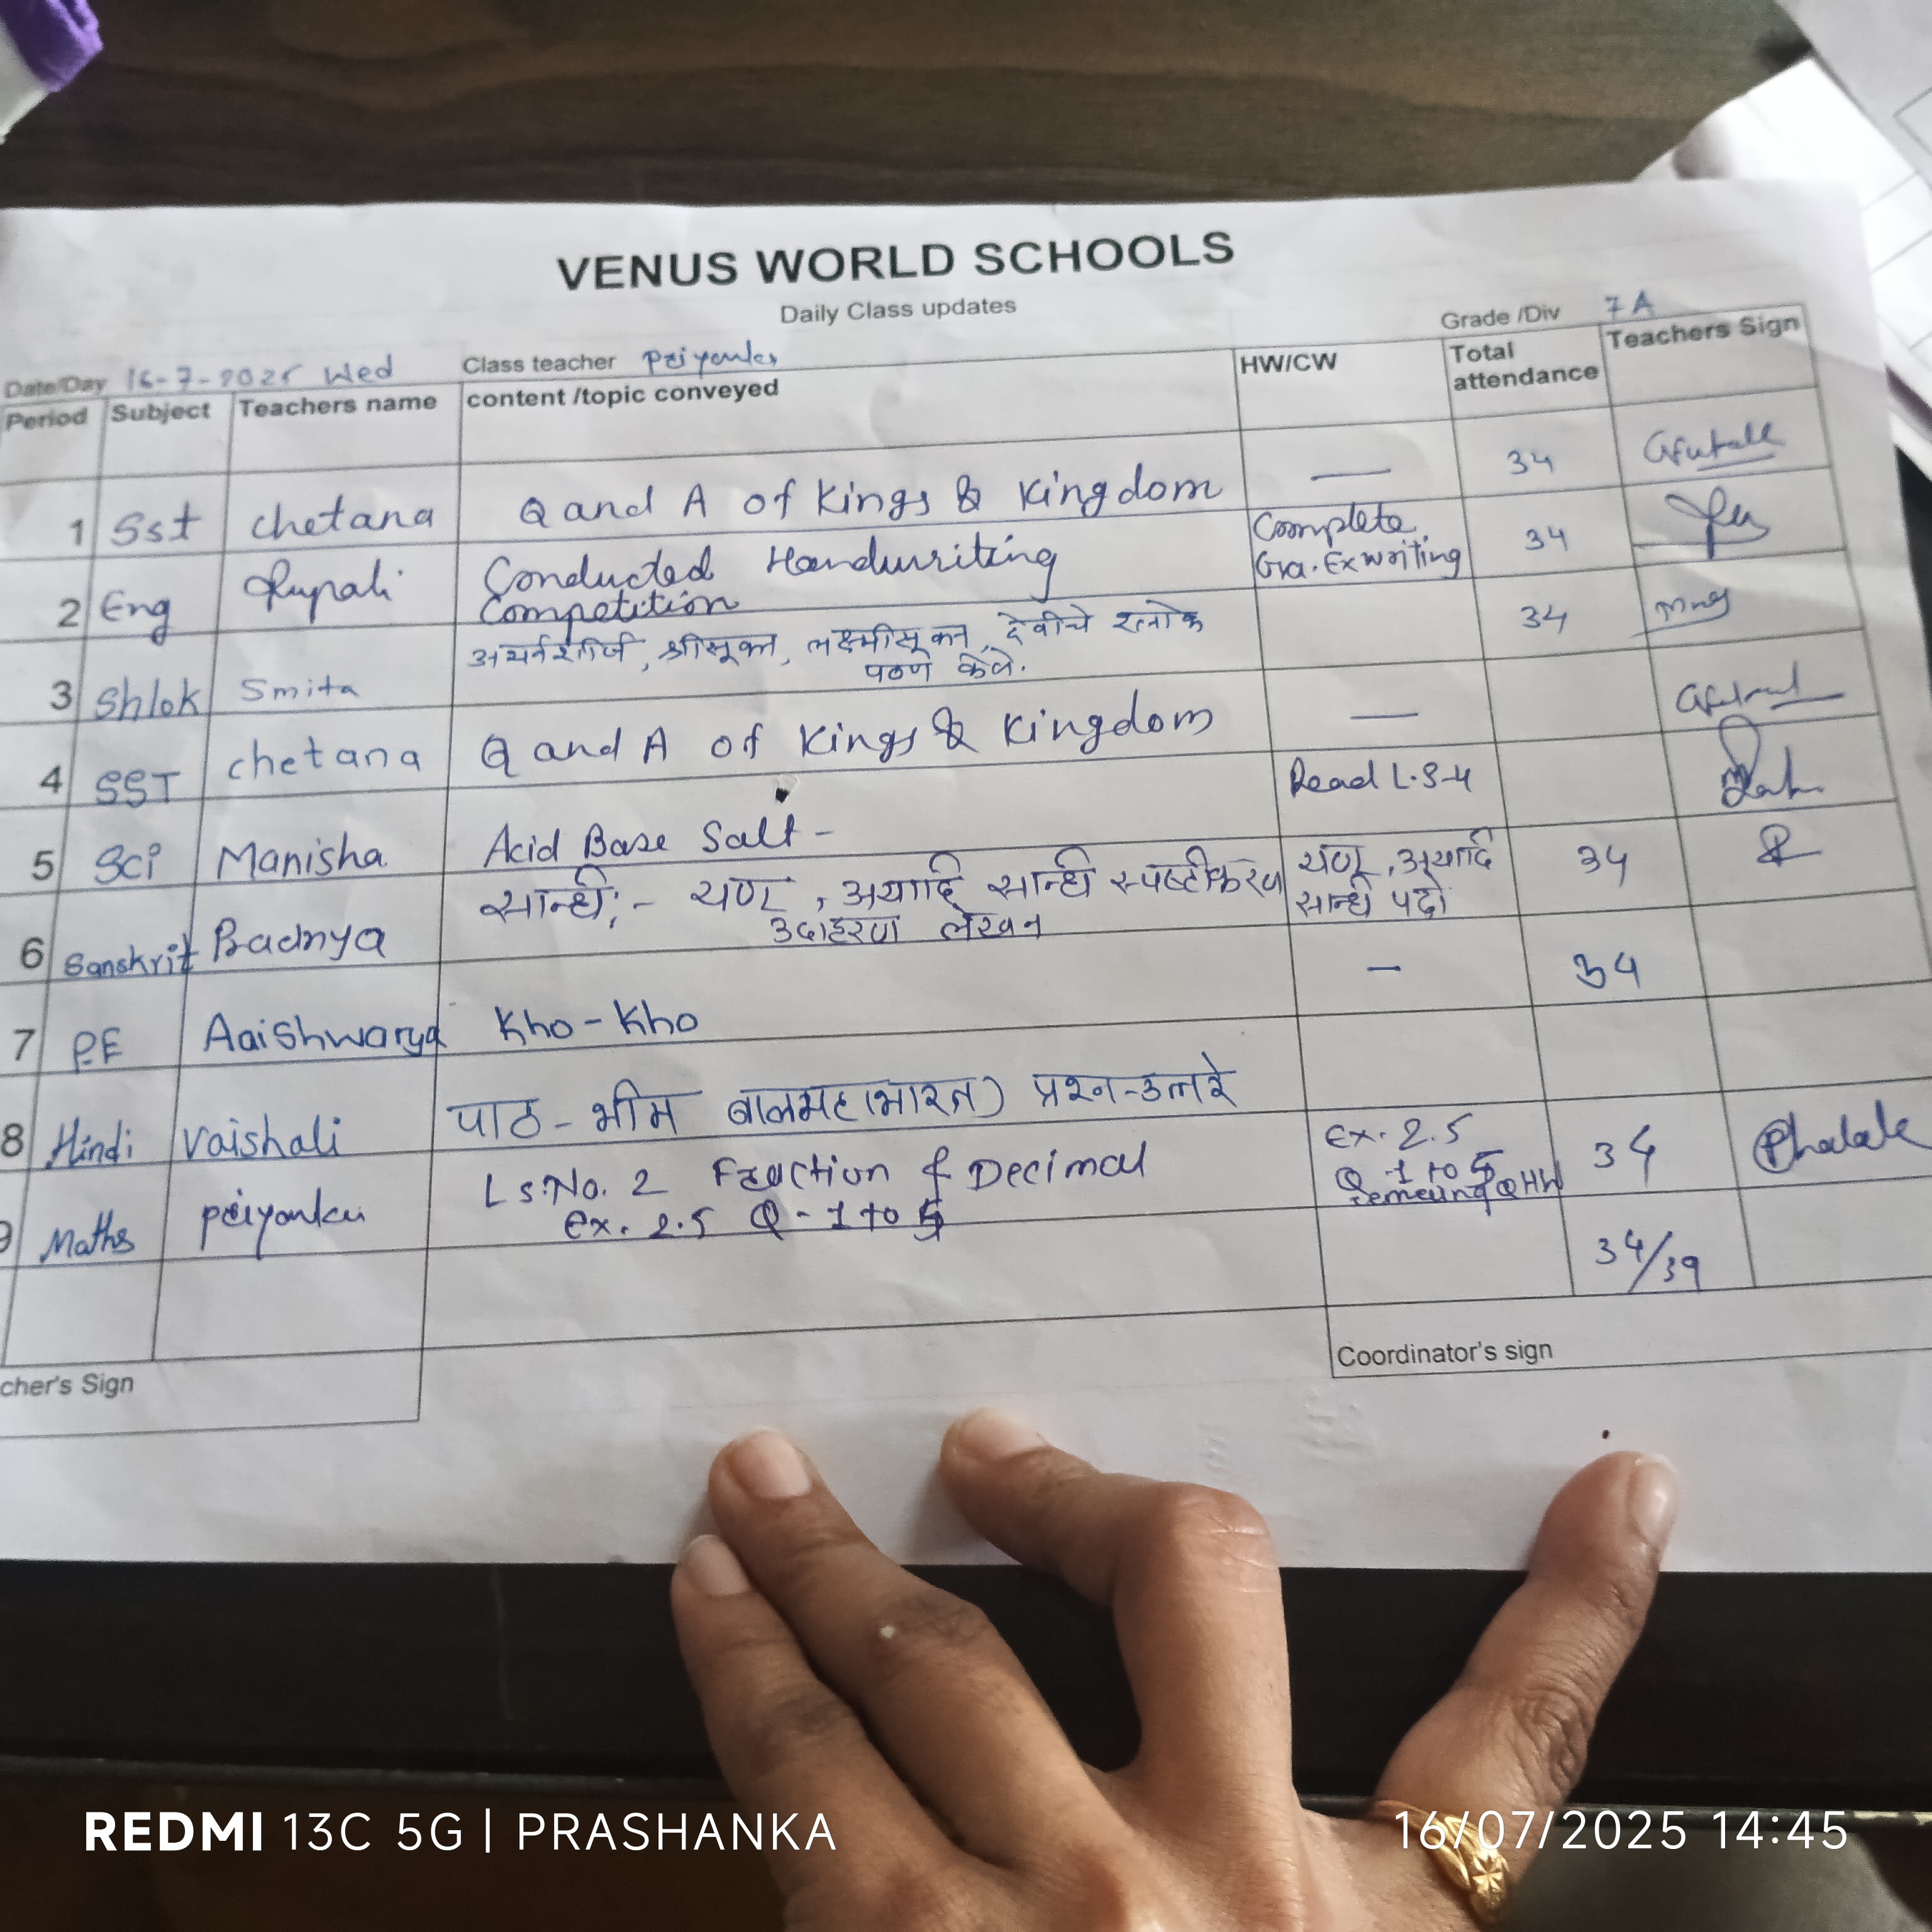 VENUS WORLD SCHOOLS
Daily Class updates
Date/Day 16-7-2025 Wed Class teacher Priyanka Grade /Div 7 A
Period Subject Teachers name content /topic conveyed HW/CW Total attendance Teachers Sign
1 Sst chetana Q and A of Kings & Kingdom — 34
2 Eng Rupali Conducted Handwriting Complete 34
Competition Gra. Ex writing
3 Shlok Smita अथर्वशीर्ष, श्रीसूक्त, लक्ष्मीसूक्त, देवीचे श्लोक 34
पठण केले.
4 SST chetana Q and A of Kings & Kingdom —
5 Sci Manisha Acid Base Salt - Read L.S-4
6 Sanskrit Pradnya सान्धी:- यण, अयादि सान्धी स्पष्टीकरण यण, अयादि 34
उदाहरण लेखन सान्धी पढो
7 P.E Aaishwarya Kho-Kho - 34
8 Hindi Vaishali पाठ - भीम बालमहाभारत) प्रश्न-उत्तरे
9 Maths Priyanka Ls.No. 2 Fraction & Decimal Ex. 2.5 34
Ex. 2.5 Q-1 to 5 Q-1 to 5
Q HW
34/39
cher's Sign Coordinator's sign
REDMI 13C 5G | PRASHANKA 16/07/2025 14:45